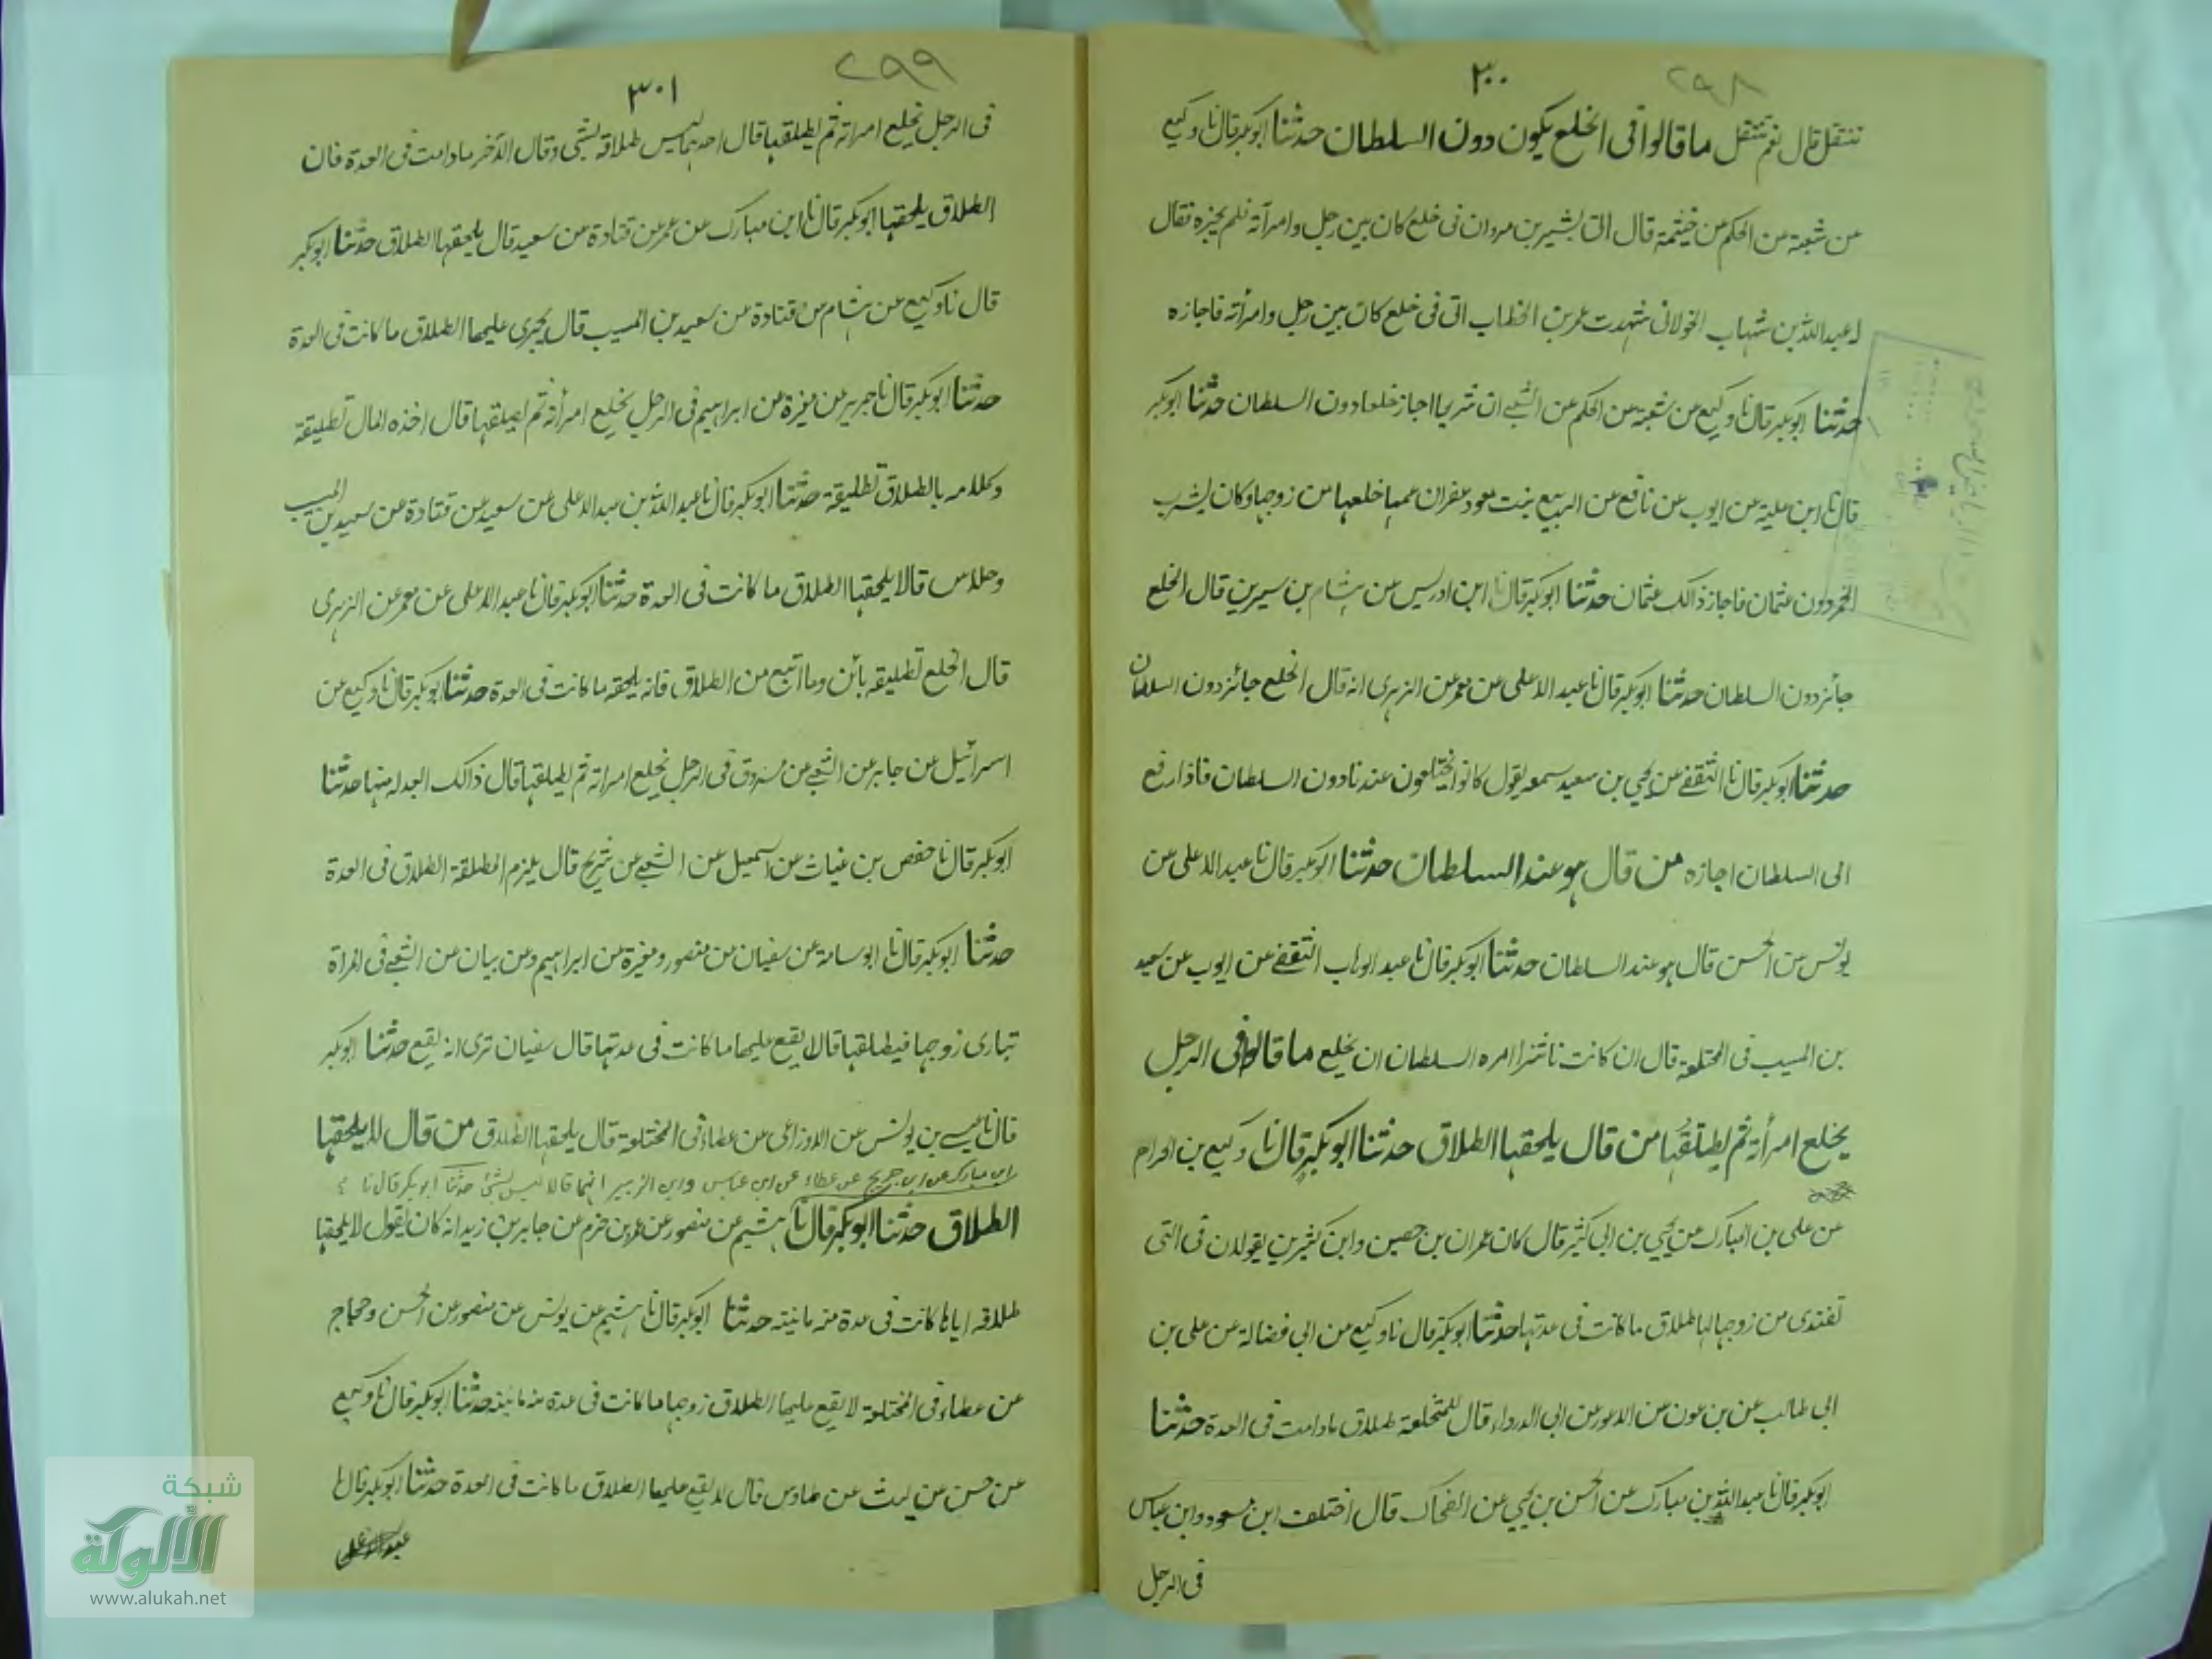 ٣٠٠
٢٩٨
تنتقل قال نعم تنتقل ما قالوا فى الخلع يكون دون السلطان حدثنا ابوبكر قال نا وكيع
عن شعبة عن الحكم عن خيثمة قال اتى بشير بن مروان فى خلع كان بين رجل وامرأته فلم يجزه فقال
له عبد الله بن شهاب الخولانى شهدت عمر بن الخطاب اتى فى خلع كان بين رجل وامرأته فاجازه
حدثنا ابوبكر قال نا وكيع عن شعبة عن الحكم عن الشعبى ان شريحا اجاز خلعا دون السلطان حدثنا ابوبكر
قال نا ابن علية عن ايوب عن نافع عن الربيع بنت معوذ بن عفران عمها خلعها من زوجها وكان يشرب
الخمر دون عثمان فاجاز ذالك عثمان حدثنا ابوبكر قال نا ابن ادريس عن هشام بن سيرين قال الخلع
جائز دون السلطان حدثنا ابوبكر قال نا عبد الاعلى عن معمر عن الزهرى انه قال الخلع جائز دون السلطان
حدثنا ابوبكر قال نا الثقفى عن يحيى بن سعيد سمعه يقول كانوا يختلعون عندنا دون السلطان فاذا رفع
الى السلطان اجازه من قال هو عند السلطان حدثنا ابوبكر قال نا عبد الاعلى عن
يونس عن الحسن قال هو عند السلطان حدثنا ابوبكر قال نا عبد الوهاب الثقفى عن ايوب عن سعيد
بن المسيب فى المختلعة قال ان كانت ناشزا امره السلطان ان يخلع ما قالوا فى الرجل
يخلع امرأته ثم يطلقها من قال يلحقها الطلاق حدثنا ابوبكر قال نا وكيع بن الجراح
عن على بن المبارك عن يحيى بن ابى كثير قال كان عمران بن حصين وابن يقولان فى التى
تفتدى من زوجها لها طلاق ما كانت فى عدتها حدثنا ابوبكر قال نا وكيع عن ابى فضالة عن على بن
ابى طالب عن بن عون عن الاعور عن ابى الدرداء قال للمختلعة طلاق مادامت فى العدة حدثنا
ابوبكر قال نا عبد الله بن مبارك عن الحسن بن يحيى عن الضحاك قال اختلف ابن مسعود وابن عباس
فى الرجل
٣٠١
٢٩٩
فى الرجل يخلع امراته ثم يطلقها قال احدهما ليس طلاقه بشئ وقال الآخر مادامت فى العدة فان
الطلاق يلحقها ابوبكر قال نا ابن مبارك عن معمر عن قتادة عن سعيد قال يلحقها الطلاق حدثنا ابوبكر
قال نا وكيع عن هشام عن قتادة عن سعيد بن المسيب قال يجرى عليها الطلاق ما كانت فى العدة
حدثنا ابوبكر قال نا جرير عن مغيرة عن ابراهيم فى الرجل يخلع امرأته ثم يطلقها قال اخذه المال تطليقة
وكلامه بالطلاق تطليقة حدثنا ابوبكر قال نا عبد الله بن عبد الاعلى عن سعيد عن قتادة عن سعيد بن المسيب
وخلاس قالا يلحقها الطلاق ما كانت فى العدة حدثنا ابوبكر قال نا عبد الاعلى عن معمر عن الزهرى
قال الخلع تطليقة بائن وما اتبع من الطلاق فانه يلحقه ما كانت فى العدة حدثنا ابوبكر قال نا وكيع عن
اسرائيل عن جابر عن الشعبى عن مسروق فى الرجل يخلع امراته ثم يطلقها قال ذالك ابعد له منها حدثنا
ابوبكر قال نا حفص بن غياث عن اسمعيل عن الشعبى عن شريح قال يلزم المطلقة الطلاق فى العدة
حدثنا ابوبكر قال نا ابو سامة عن سفيان عن منصور ومغيرة عن ابراهيم وعن بيان عن الشعبى فى المراة
تبارى زوجها فيطلقها قالا يقع عليها ما كانت فى عدتها قال سفيان ترى انه يقع حدثنا ابوبكر
قال نا عيسى بن يونس عن الاوزاعى عن عطاء فى المختلعة قال يلحقها الطلاق من قال لا يلحقها
ابن مبارك عن ابن جريج عن عطاء عن ابن عباس وابن الزبير انهما قالا ليس بشئ حدثنا ابوبكر قال نا
الطلاق حدثنا ابوبكر قال نا هشيم عن منصور عن عمر بن حزم عن جابر بن زيد انه كان يقول لا يلحقها
طلاقه اياها كانت فى عدة منه بانينة حدثنا ابوبكر قال نا هشيم عن يونس عن منصور عن الحسن وحجاج
عن عطاء فى المختلعة لا يقع عليها الطلاق زوجها ما كانت فى عدة منه بانينة حدثنا ابوبكر قال نا وكيع
عن حسن عن ليث عن طاوس قال لا يقع عليها الطلاق ما كانت فى العدة حدثنا ابوبكر قال نا
شبكة
الألوكة
www.alukah.net